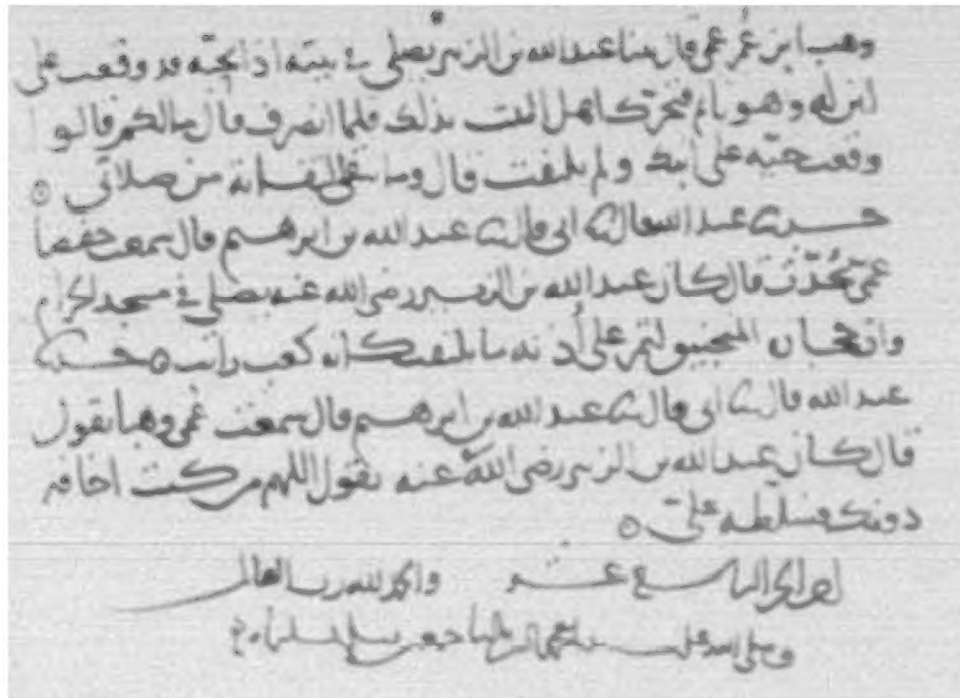 وهب ابن عمر عمي قال بينا عبد الله بن الزبير يصلي في بيته اذا بحية قد وقعت على
ابن له وهو نائم فتحرك اهل البيت بذلك فلما انصرف قال مالكم قالوا
وقعت حية على ابنك ولم يلتفت قال وما من صلاتي ه
حدثنا عبد الله قال ثنا ابي قال ثنا عبد الله بن ابرهيم قال سمعت
عمي يحدث قال كان عبد الله بن الزبير رضي الله عنه يصلي في مسجد لحرام
وان المنجنيق لتمر على أذنه ما يلتفت كانه كعب راتب ه حدثنا
عبد الله قال ثنا ابي قال ثنا عبد الله بن ابرهيم قال سمعت عمي وهبا يقول
قال كان عبد الله بن الزبير رضي الله عنه يقول اللهم من كنت اخافه
دونك فسلطه علي ه
اخر الجزء التاسع عشر والحمد لله رب العالمين
وصلى الله على